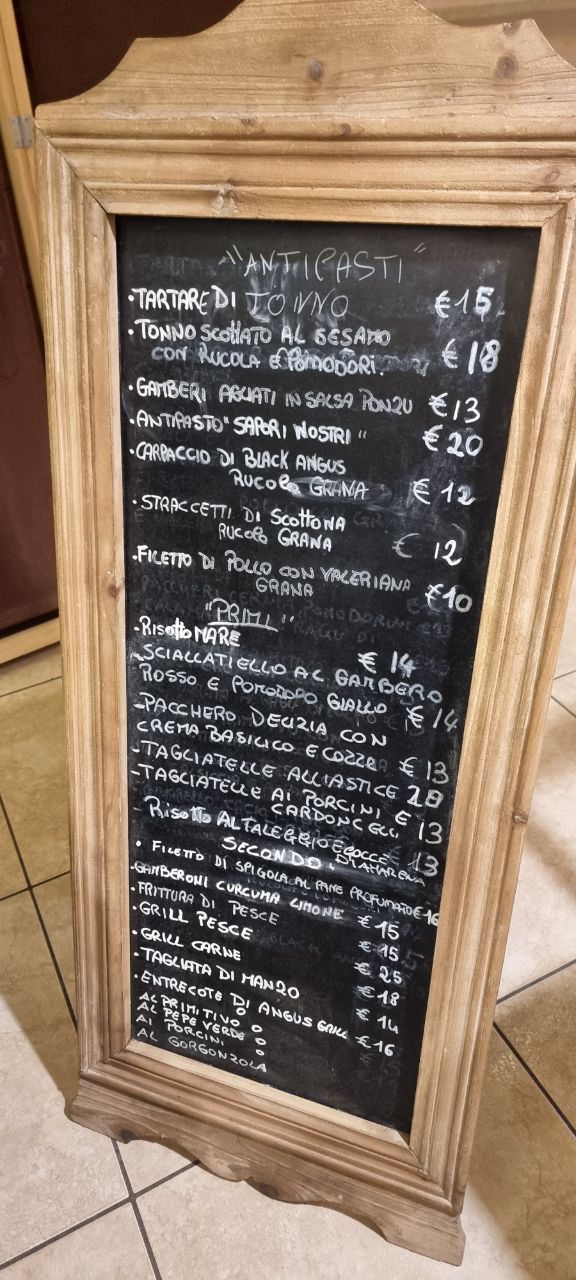 "ANTIPASTI"
•TARTARE DI TONNO €15
•TONNO SCOTTATO AL SESAMO
CON RUCOLA E POMODORI. €18
•GAMBERI AGLIATI IN SALSA PONZU €13
•ANTIPASTO "SAPORI NOSTRI" €20
•CARPACCIO DI BLACK ANGUS
RUCOLA GRANA €12
•STRACCETTI DI SCOTTONA
RUCOLA GRANA €12
•FILETTO DI POLLO CON VALERIANA
GRANA €10
"PRIMI"
-RISOTTO MARE €14
-SCIALLATIELLO AL GAMBERO
ROSSO E POMODORO GIALLO €14
-PACCHERO DELIZIA CON
CREMA BASILICO E COZZE €13
-TAGLIATELLE ALL'IASTICE 20
-TAGLIATELLE AI PORCINI E
CARDONCELLI €13
-RISOTTO AL TALEGGIO E GOCCE
DI AMARENA €13
SECONDO.
•FILETTO DI SPIGOLA AL PANE PROFUMATO €16
•GAMBERONI CURCUMA LIMONE €15
•FRITTURA DI PESCE €15
•GRILL PESCE €25
•GRILL CARNE €18
•TAGLIATA DI MANZO €14
•ENTRECOTE DI ANGUS GRILL €16
AL PRIMITIVO O
AL PEPE VERDE O
AI PORCINI O
AL GORGONZOLA